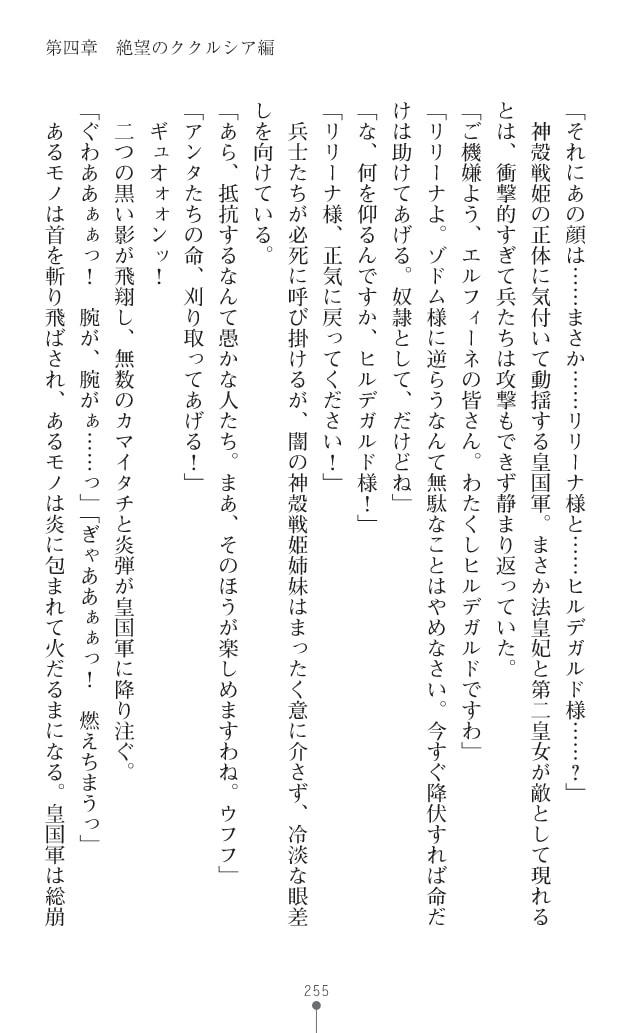 第四章　絶望のククルシア編
「それにあの顔は……まさか……リリーナ様と……ヒルデガルド様……？」
　神殻戦姫の正体に気付いて動揺する皇国軍。まさか法皇妃と第二皇女が敵として現れる
とは、衝撃的すぎて兵たちは攻撃もできず静まり返っていた。
「ご機嫌よう、エルフィーネの皆さん。わたくしヒルデガルドですわ」
「リリーナよ。ゾドム様に逆らうなんて無駄なことはやめなさい。今すぐ降伏すれば命だ
けは助けてあげる。奴隷として、だけどね」
「な、何を仰るんですか、ヒルデガルド様！」
「リリーナ様、正気に戻ってください！」
　兵士たちが必死に呼び掛けるが、闇の神殻戦姫姉妹はまったく意に介さず、冷淡な眼差
しを向けている。
「あら、抵抗するなんて愚かな人たち。まあ、そのほうが楽しめますわね。ウフフ」
「アンタたちの命、刈り取ってあげる！」
　ギュオォォンッ！
　二つの黒い影が飛翔し、無数のカマイタチと炎弾が皇国軍に降り注ぐ。
「ぐわああぁぁっ！　腕が、腕がぁ……っ」「ぎゃああぁぁっ！　燃えちまうっ」
　あるモノは首を斬り飛ばされ、あるモノは炎に包まれて火だるまになる。皇国軍は総崩
255